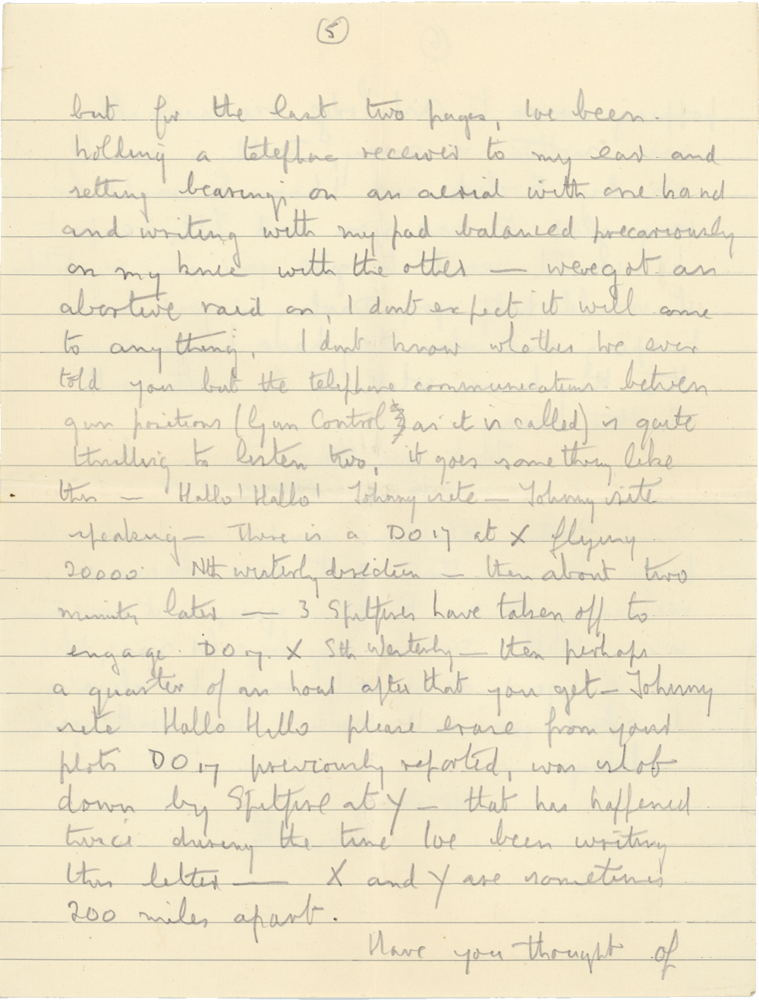 5
but for the last two pages, Ive been.
holding a telephone receiver to my ear and
setting bearings on an aerial with one hand
and writing with my pad balanced precariously
on my knee with the other — weve got an
abortive raid on, I dont expect it will come
to anything. I dont know whether Ive ever
told you but the telephone communication between
gun positions (Gun Control as it is called) is quite
thrilling to listen two, it goes something like
this — 'Hallo! Hallo! Johnny site — Johnny site
speaking — There is a DO 17 at X flying
20000. Nth westerly direction — then about two
minutes later — 3 Spitfires have taken off to
engage. DO 17. X Sth Westerly — then perhaps
a quarter of an hour after that you get — Johnny
site Hallo Hello please erase from your
plots DO 17 previously reported, was shot
down by Spitfire at Y — that has happened
twice during the time Ive been writing
this letter — X and Y are sometimes
200 miles apart.
Have you thought of